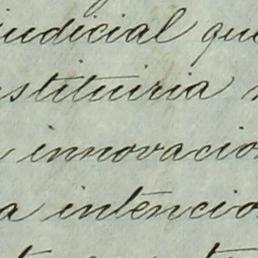 judicial que
stituiria
innovacio
a intencio